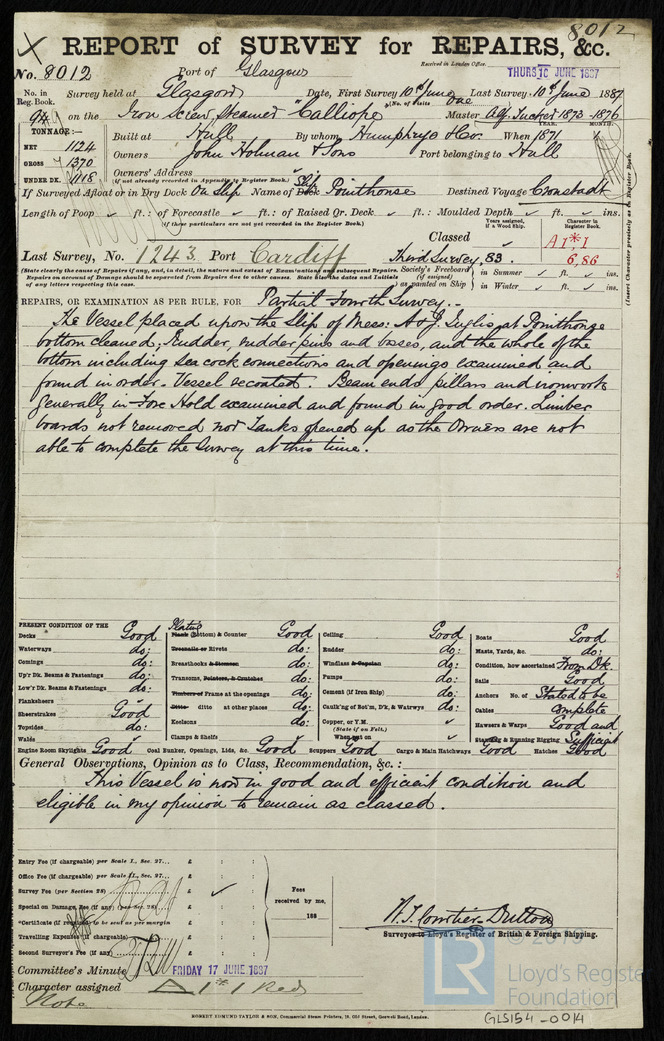 8012
REPORT of SURVEY for REPAIRS, &c.
Received in London Office
THURS 16 JUNE 1887
No. 8012 Port of Glasgow
No. in Reg. Book. Survey held at Glasgow Date, First Survey 10th June Last Survey 10th June 1887
(No. of Visits One
94 on the Iron Screw Steamer "Calliope" Master 1873-1876
YEAR. MONTH.
TONNAGE:—
NET 1124
GROSS 1370
UNDER DK. 1118
Built at Hull By whom Humphrys & Co. When 1871
Owners John Holman & Sons Port belonging to Hull
Owners' Address
(if not already recorded in Appendix to Register Book.)
If Surveyed Afloat or in Dry Dock On Slip Name of Dock Slip Pointhouse Destined Voyage Cronstadt
Length of Poop ft.: of Forecastle ft.: of Raised Qr. Deck ft.: Moulded Depth ft. ins.
(If these particulars are not yet recorded in the Register Book.)
(Insert Character precisely as in Register Book.)
Classed
Years assigned, if a Wood Ship.
Character in Register Book.
A1*1
6,86
Last Survey, No. 1243 Port Cardiff Third Survey, 83.
(State clearly the cause of Repairs if any, and, in detail, the nature and extent of Examinations and subsequent Repairs.
Repairs on account of Damage should be separated from Repairs due to other causes. State also the dates and Initials
of any letters respecting this case.
Society's Freeboard (if assigned) as painted on Ship
in Summer ft. ins.
in Winter ft. ins.
REPAIRS, OR EXAMINATION AS PER RULE, FOR Partial Fourth Survey..
The Vessel placed upon the Slip of Mess: A & J. Inglis at Pointhouse
bottom cleaned; Rudder, rudder pins and bases, and the whole of the
bottom including sea cock connections and openings examined and
found in order. Vessel recoated. Beam ends, pillars and ironwork
generally in Fore Hold examined and found in good order. Limber
boards not removed nor Tanks opened up as the Owners are not
able to complete the Survey at this time.
PRESENT CONDITION OF THE
Decks Good
Waterways do:
Comings do:
Up'r Dk. Beams & Fastenings do:
Low'r Dk. Beams & Fastenings do:
Planksheers
Sheerstrakes Good
Topsides do:
Wales
Plating
Plank (Bottom) & Counter Good
Treenails or Rivets do:
Breasthooks & Stemson do:
Transoms, Pointers, & Crutches do:
Timbers or Frame at the openings do:
Ditto ditto at other places do:
Keelsons do:
Clamps & Shelfs
Ceiling Good
Rudder do:
Windlass & Capstan do:
Pumps do:
Cement (if Iron Ship) do:
Caulk'g of Bot'm, D'k, & Watrwys do:
Copper, or Y.M.
(State if on Felt.)
When put on
Boats Good
Masts, Yards, &c. do:
Condition, how ascertained From Dk
Sails Good
Anchors No. of Stated to be
Cables complete
Hawsers & Warps Good and
Standing & Running Rigging Sufficient
Engine Room Skylights Good Coal Bunker, Openings, Lids, &c. Good Scuppers Good Cargo & Main Hatchways Good Hatches Good
General Observations, Opinion as to Class, Recommendation, &c.:
This Vessel is now in good and efficient condition and
eligible in my opinion to remain as classed.
Entry Fee (if chargeable) per Scale I., Sec. 27... £ : :
Office Fee (if chargeable) per Scale II., Sec. 27... £ : :
Survey Fee (per Section 28) £ : :
Special or Damage Fee (if any) (per Sec. 28) £ : :
*Certificate (if required) to be sent as per margin
Travelling Expenses (if chargeable) £ : :
Second Surveyor's Fee (if any) £ : :
Fees received by me,
188
Surveyor to Lloyd's Register of British & Foreign Shipping.
Committee's Minute FRIDAY 17 JUNE 1887
Character assigned A 1*1 Red
Note
ROBERT EDMUND TAYLOR & SON, Commercial Steam Printers, 19, Old Street, Goswell Road, London.
LR
Lloyd's Register
Foundation
GLS154-0014